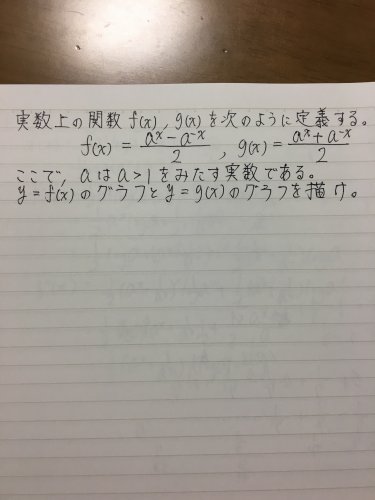 実数上の関数 f(x), g(x) を次のように定義する。
f(x) = \frac{a^x - a^{-x}}{2} , g(x) = \frac{a^x + a^{-x}}{2}
ここで, a は a > 1 をみたす実数である。
y = f(x) のグラフと y = g(x) のグラフを描け。